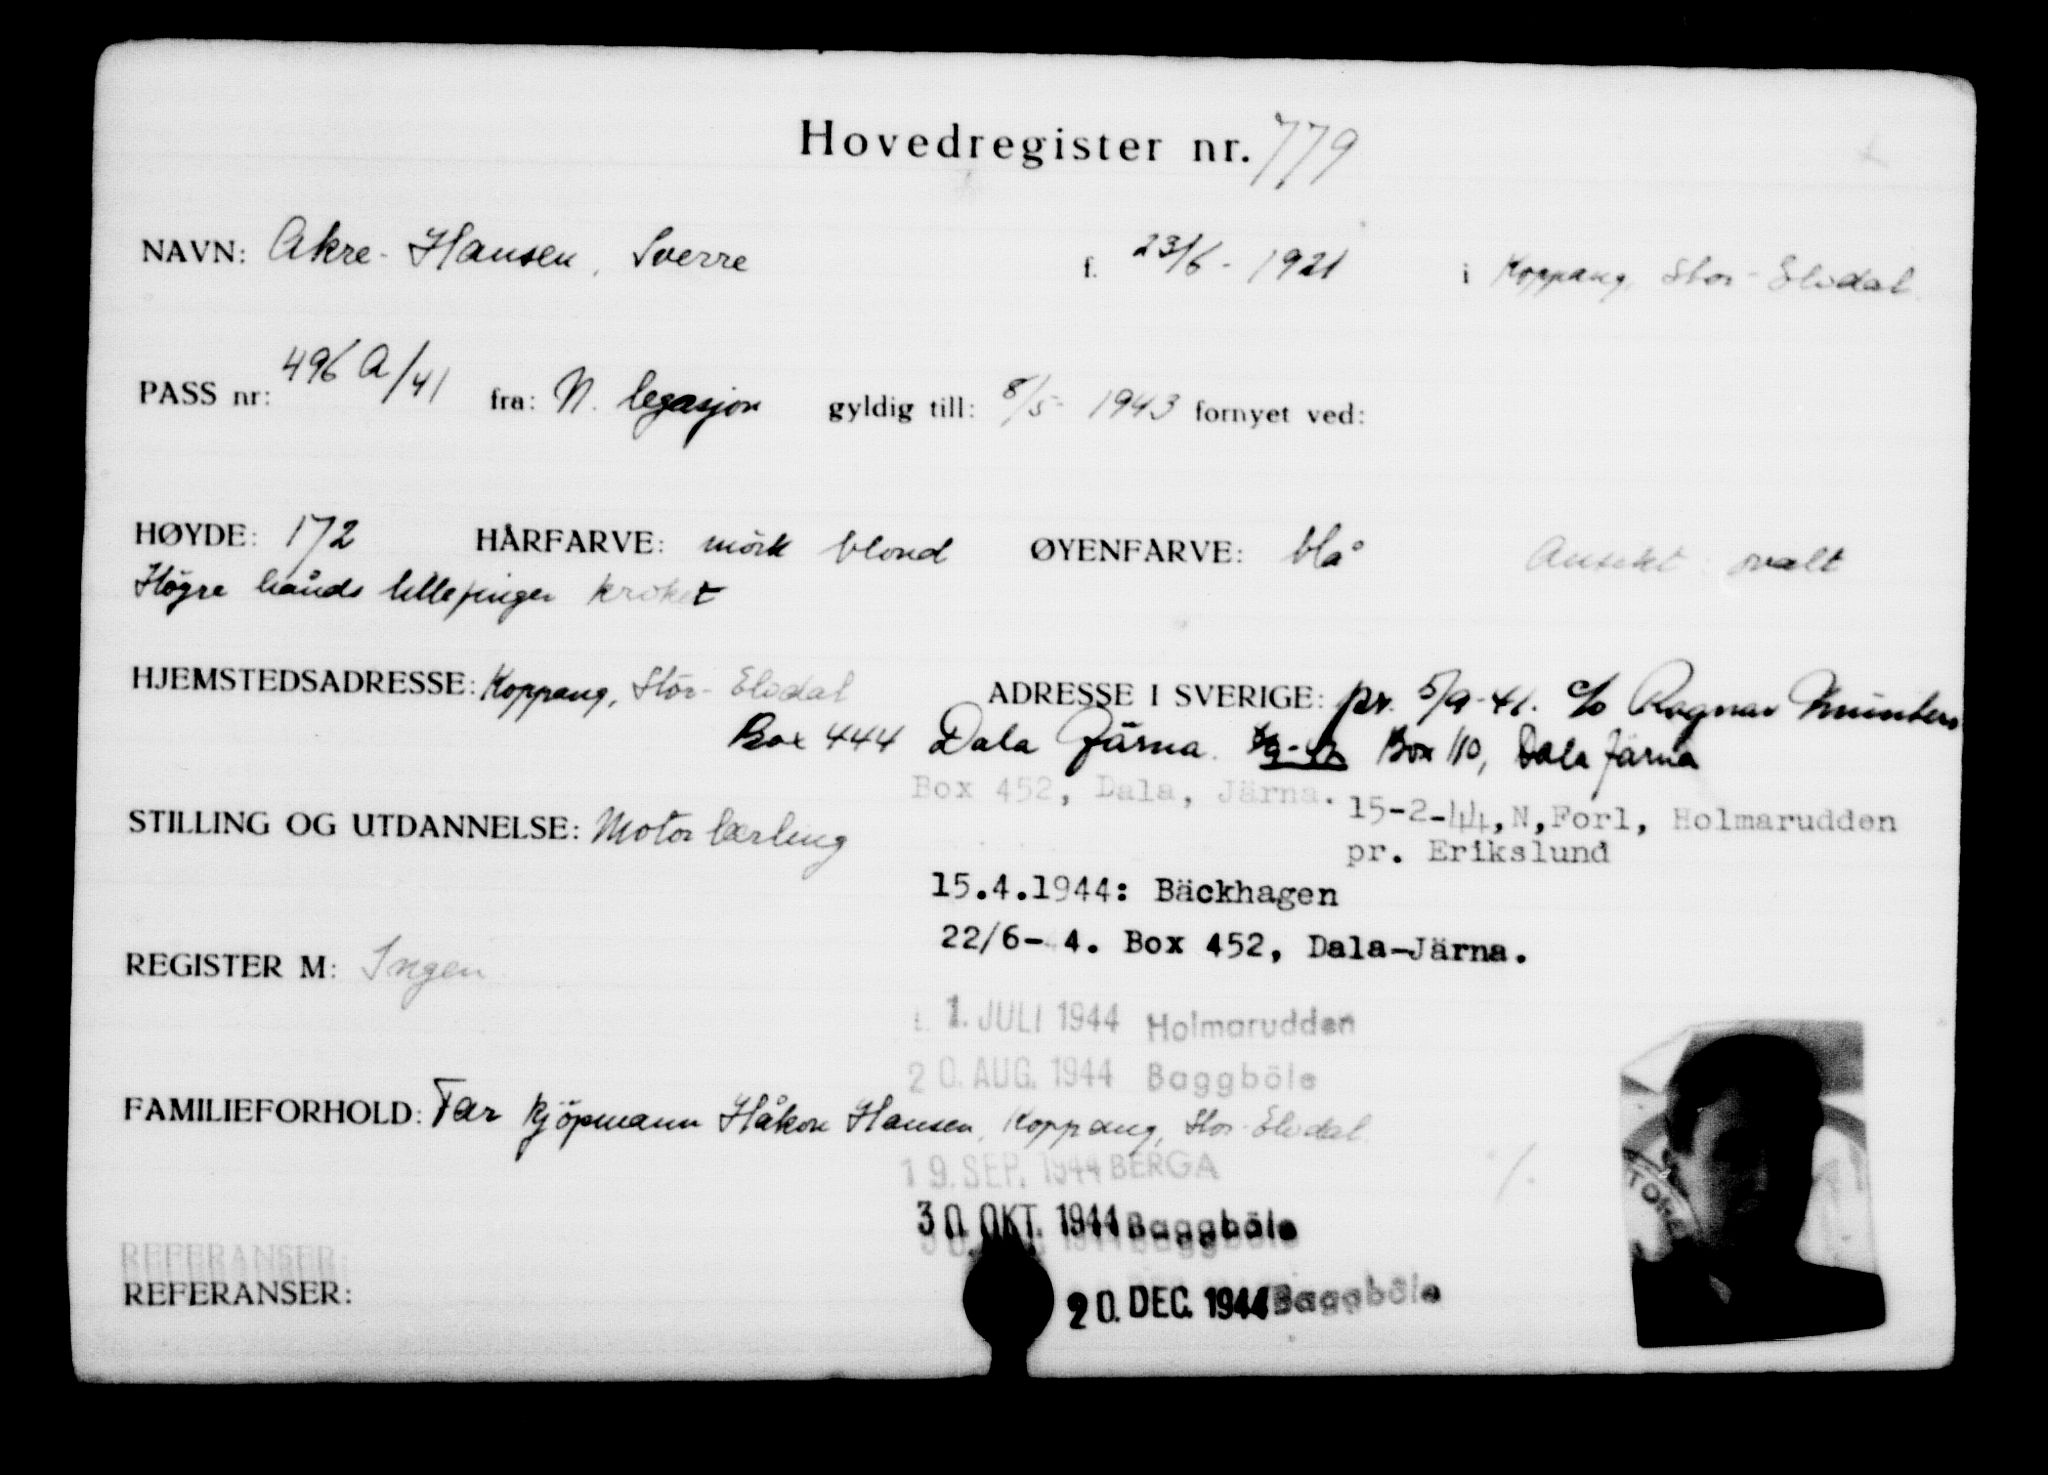 Hovedregister nr. 779
NAVN: Akre-Hansen, Sverre f. 23/6-1921 i Koppang, Stor-Elvdal.
PASS nr: 496 A/41 fra: N. legasjon gyldig till: 8/5-1943 fornyet ved:
HØYDE: 172 HÅRFARVE: mörk blond ØYENFARVE: blå Ansikt: ovalt
Högre hånds lillefinger kroket
HJEMSTEDSADRESSE: Koppang, Stor-Elvdal ADRESSE I SVERIGE: pr. 5/9-41. c/o Ragnar
Box 444 Dala Järna. Box 110, Dala Järna
Box 452, Dala, Järna. 15-2-44, N,Forl, Holmarudden
STILLING OG UTDANNELSE: Motorlærling pr. Erikslund
15.4.1944: Bäckhagen
22/6- 4. Box 452, Dala-Järna.
REGISTER M: Ingen
1. JULI 1944 Holmarudden
20. AUG. 1944 Baggböle
FAMILIEFORHOLD: Far kjöpmann Håkon Hansen, Koppang, Stor-Elvdal.
19. SEP. 1944 BERGA
30. OKT. 1944 Baggböle
REFERANSER:
REFERANSER: 20. DEC. 1944 Baggböle